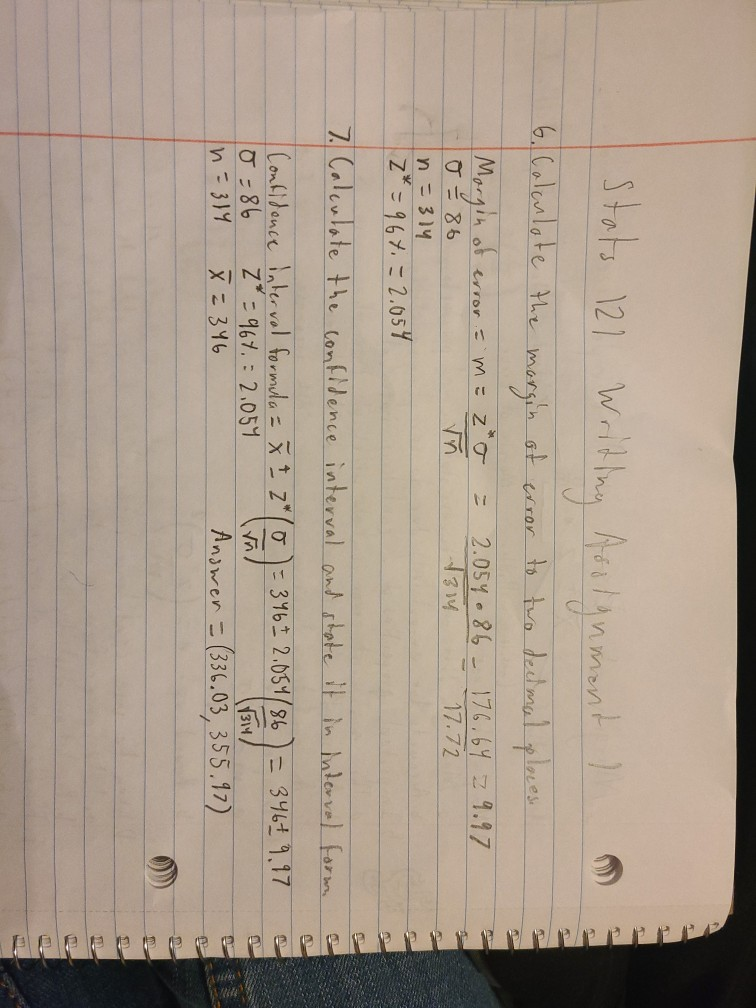 Stats 121 Writing Assignment 1
6. Calculate the margin of error to two decimal places
Margin of error = m = z*σ/√n = 2.054•86/√314 = 176.64/17.72 = 9.97
σ = 86
n = 314
z* = 96% = 2.054
7. Calculate the confidence interval and state it in interval form
Confidence interval formula = x̄ ± z*(σ/√n) = 346 ± 2.054(86/√314) = 346 ± 9.97
σ = 86 z* = 96% = 2.054
n = 314 x̄ = 346 Answer = (336.03, 355.97)